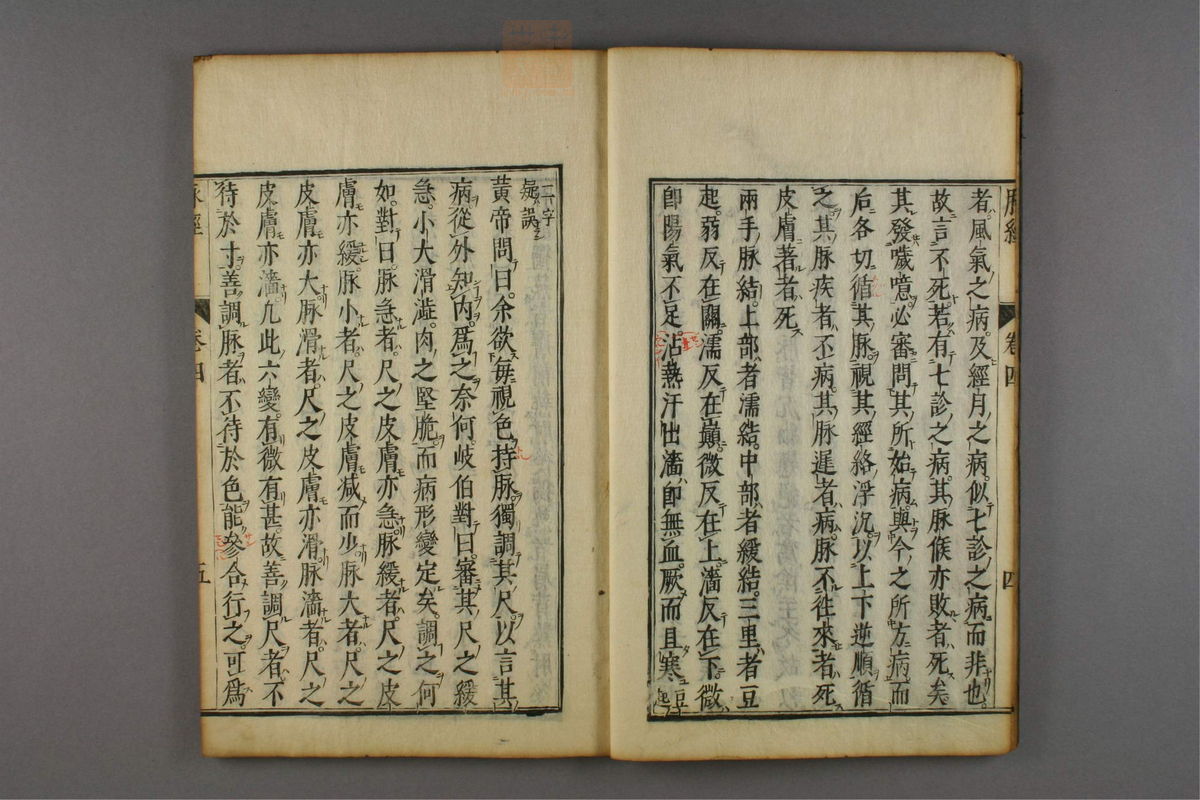 脉經
卷四
四
者風氣之病及經月之病似七診之病而非也
故言不死若有七診之病其脉候亦敗者死矣
其發噦噫必審問其所始病與今之所方病而
后各切循其脉視其經絡浮沉以上下逆順循
之其脉疾者不病其脉遲者病脉不徃來者死
皮膚著者死
兩手脉結上部者濡結中部者緩結三里者豆
起弱反在關濡反在巔微反在上濇反在下微
卽陽氣不足沾熱汗出濇卽無血厥而且寒豆起
二字
疑誤
黃帝問曰余欲每視色持脉獨調其尺以言其
病從外知內爲之奈何岐伯對曰審其尺之緩
急小大滑澁肉之堅脆而病形變定矣調之何
如對曰脉急者尺之皮膚亦急脉緩者尺之皮
膚亦緩脉小者尺之皮膚减而少脉大者尺之
皮膚亦大脉滑者尺之皮膚亦滑脉濇者尺之
皮膚亦濇凢此六變有微有甚故善調尺者不
待於寸善調脉者不待於色能參合行之可爲
卷四
五